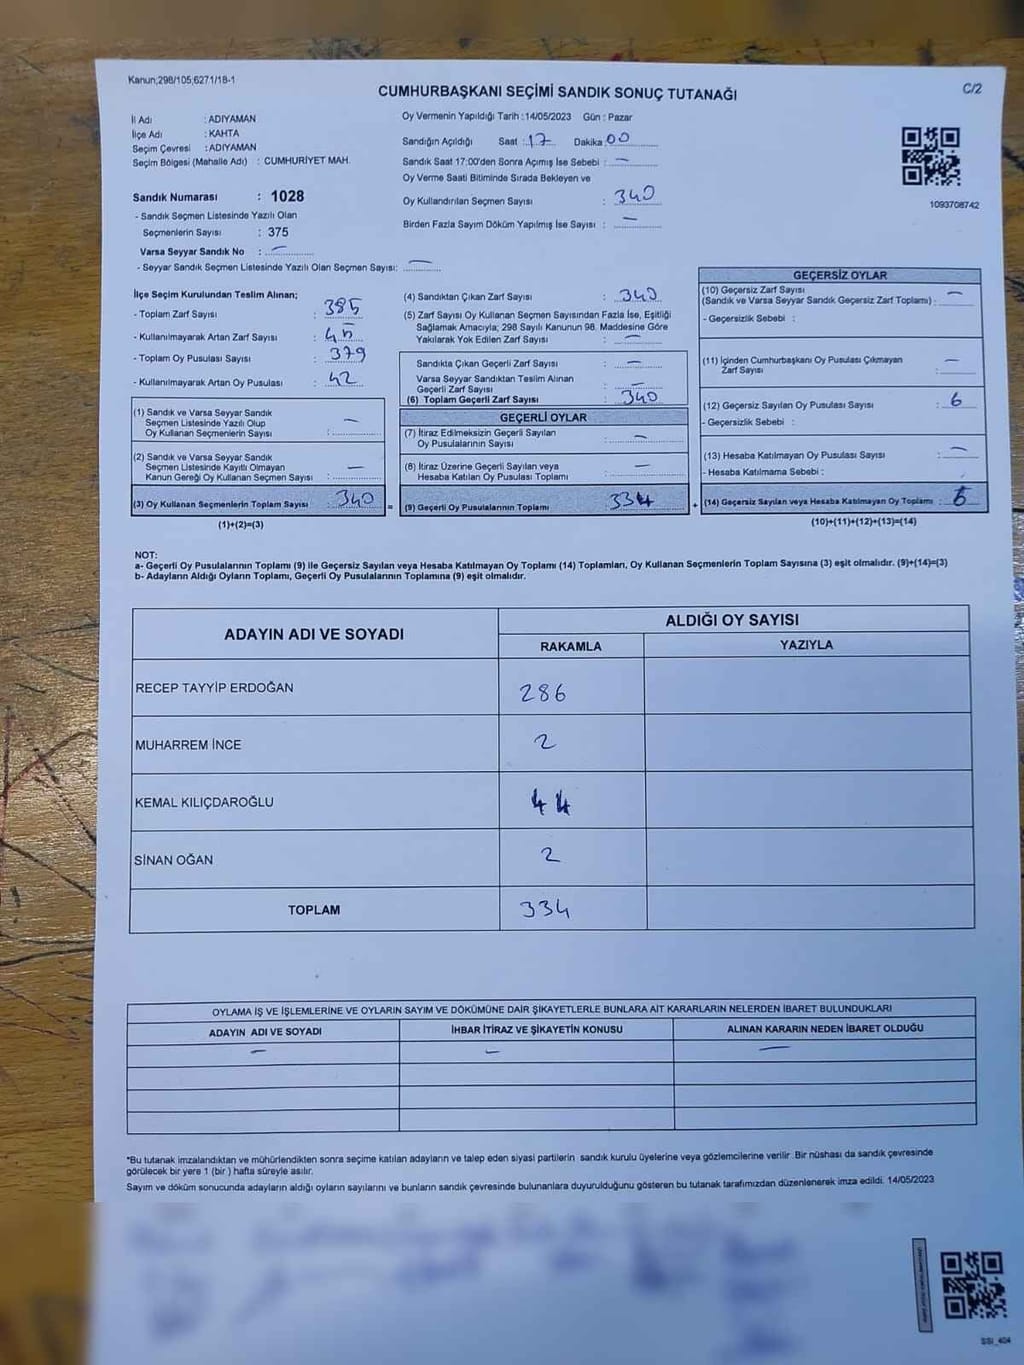 Kanun;298/105;6271/18-1
C/2
CUMHURBAŞKANI SEÇİMİ SANDIK SONUÇ TUTANAĞI
İl Adı : ADIYAMAN
İlçe Adı : KAHTA
Seçim Çevresi : ADIYAMAN
Seçim Bölgesi (Mahalle Adı) : CUMHURİYET MAH.
Sandık Numarası : 1028
- Sandık Seçmen Listesinde Yazılı Olan
Seçmenlerin Sayısı : 375
Varsa Seyyar Sandık No : —
- Seyyar Sandık Seçmen Listesinde Yazılı Olan Seçmen Sayısı: —
Oy Vermenin Yapıldığı Tarih : 14/05/2023 Gün : Pazar
Sandığın Açıldığı Saat : 17 Dakika : 00
Sandık Saat 17:00'den Sonra Açımış İse Sebebi : —
Oy Verme Saati Bitiminde Sırada Bekleyen ve
Oy Kullandırılan Seçmen Sayısı : 340
Birden Fazla Sayım Döküm Yapılmış İse Sayısı : —
1093708742
İlçe Seçim Kurulundan Teslim Alınan;
- Toplam Zarf Sayısı : 385
- Kullanılmayarak Artan Zarf Sayısı : 45
- Toplam Oy Pusulası Sayısı : 379
- Kullanılmayarak Artan Oy Pusulası : 42
(1) Sandık ve Varsa Seyyar Sandık
Seçmen Listesinde Yazılı Olup
Oy Kullanan Seçmenlerin Sayısı : —
(2) Sandık ve Varsa Seyyar Sandık
Seçmen Listesinde Kayıtlı Olmayan
Kanun Gereği Oy Kullanan Seçmen Sayısı : —
(3) Oy Kullanan Seçmenlerin Toplam Sayısı : 340
(1)+(2)=(3)
(4) Sandıktan Çıkan Zarf Sayısı : 340
(5) Zarf Sayısı Oy Kullanan Seçmen Sayısından Fazla İse, Eşitliği
Sağlamak Amacıyla; 298 Sayılı Kanunun 98. Maddesine Göre
Yakılarak Yok Edilen Zarf Sayısı : —
Sandıkta Çıkan Geçerli Zarf Sayısı : —
Varsa Seyyar Sandıktan Teslim Alınan
Geçerli Zarf Sayısı : —
(6) Toplam Geçerli Zarf Sayısı : 340
GEÇERLİ OYLAR
(7) İtiraz Edilmeksizin Geçerli Sayılan
Oy Pusulalarının Sayısı : —
(8) İtiraz Üzerine Geçerli Sayılan veya
Hesaba Katılan Oy Pusulası Toplamı : —
= (9) Geçerli Oy Pusulalarının Toplamı 334
GEÇERSİZ OYLAR
(10) Geçersiz Zarf Sayısı
(Sandık ve Varsa Seyyar Sandık Geçersiz Zarf Toplamı) : —
- Geçersizlik Sebebi :
(11) İçinden Cumhurbaşkanı Oy Pusulası Çıkmayan
Zarf Sayısı : —
(12) Geçersiz Sayılan Oy Pusulası Sayısı : 6
- Geçersizlik Sebebi :
(13) Hesaba Katılmayan Oy Pusulası Sayısı : —
- Hesaba Katılmama Sebebi :
+ (14) Geçersiz Sayılan veya Hesaba Katılmayan Oy Toplamı :
(10)+(11)+(12)+(13)=(14)
NOT:
a- Geçerli Oy Pusulalarının Toplamı (9) ile Geçersiz Sayılan veya Hesaba Katılmayan Oy Toplamı (14) Toplamları, Oy Kullanan Seçmenlerin Toplam Sayısına (3) eşit olmalıdır. (9)+(14)=(3)
b- Adayların Aldığı Oyların Toplamı, Geçerli Oy Pusulalarının Toplamına (9) eşit olmalıdır.
ADAYIN ADI VE SOYADI
ALDIĞI OY SAYISI
RAKAMLA YAZIYLA
RECEP TAYYİP ERDOĞAN 286
MUHARREM İNCE 2
KEMAL KILIÇDAROĞLU 44
SİNAN OĞAN 2
TOPLAM 334
OYLAMA İŞ VE İŞLEMLERİNE VE OYLARIN SAYIM VE DÖKÜMÜNE DAİR ŞİKAYETLERLE BUNLARA AİT KARARLARIN NELERDEN İBARET BULUNDUKLARI
ADAYIN ADI VE SOYADI İHBAR İTİRAZ VE ŞİKAYETİN KONUSU ALINAN KARARIN NEDEN İBARET OLDUĞU
— — —
*Bu tutanak imzalandıktan ve mühürlendikten sonra seçime katılan adayların ve talep eden siyasi partilerin sandık kurulu üyelerine veya gözlemcilerine verilir. Bir nüshası da sandık çevresinde
görülecek bir yere 1 (bir) hafta süreyle asılır.
Sayım ve döküm sonucunda adayların aldığı oyların sayılarını ve bunların sandık çevresinde bulunanlara duyurulduğunu gösteren bu tutanak tarafımızdan düzenlenerek imza edildi. 14/05/2023
SSI_404